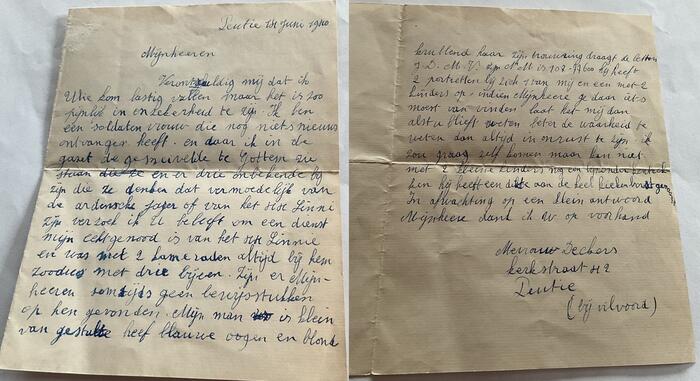 Peutie 1st Juni 1940
Mijnheeren
Verontschuldig mij dat ik
Ulie kom lastig vallen maar het is zoo
in onzekerheid te zijn. Ik ben
een soldaten vrouw die nog niets nieuws
ontvangen heeft. en daar ik in de
gazet de gesneuvelde te Gottem zie
staan die ze en er drie onbekende bij
zijn die ze denken dat vermoedelijk van
de ardensche jager of van het Linni
zijn verzoek ik U beleeft om een dienst
mijn echtgenood is van het Linnie
en was met 2 kameraden altijd bij hem
zoodus met drie bijeen. Zijn er Mijn-
heeren somtijds geen bewijsstukken
op hen gevonden. Mijn man is klein
van gestalte heef blauwe oogen en blond
krullend haar zijn trouwring draagt de letters
J. D. M. V. zijn No M is 108 - heeft
2 portretten bij zich 1 van mij en een met 2
kinders op. indien Mijnheere ge daar iets
moest van vinden laat het mij dan
alstublieft weten beter de waarheid te
weten dan altijd in onrust te zijn ik
zou graag zelf komen maar kan niet
met 2 kleine kinders nog een bijzonder
hij heeft een aan de keel
In afwachting op een klein antwoord
Mijnheere dank ik U op voorhand
Mevrouw Deckers
Kerkstraat 42
Peutie
(bij vilvoord)